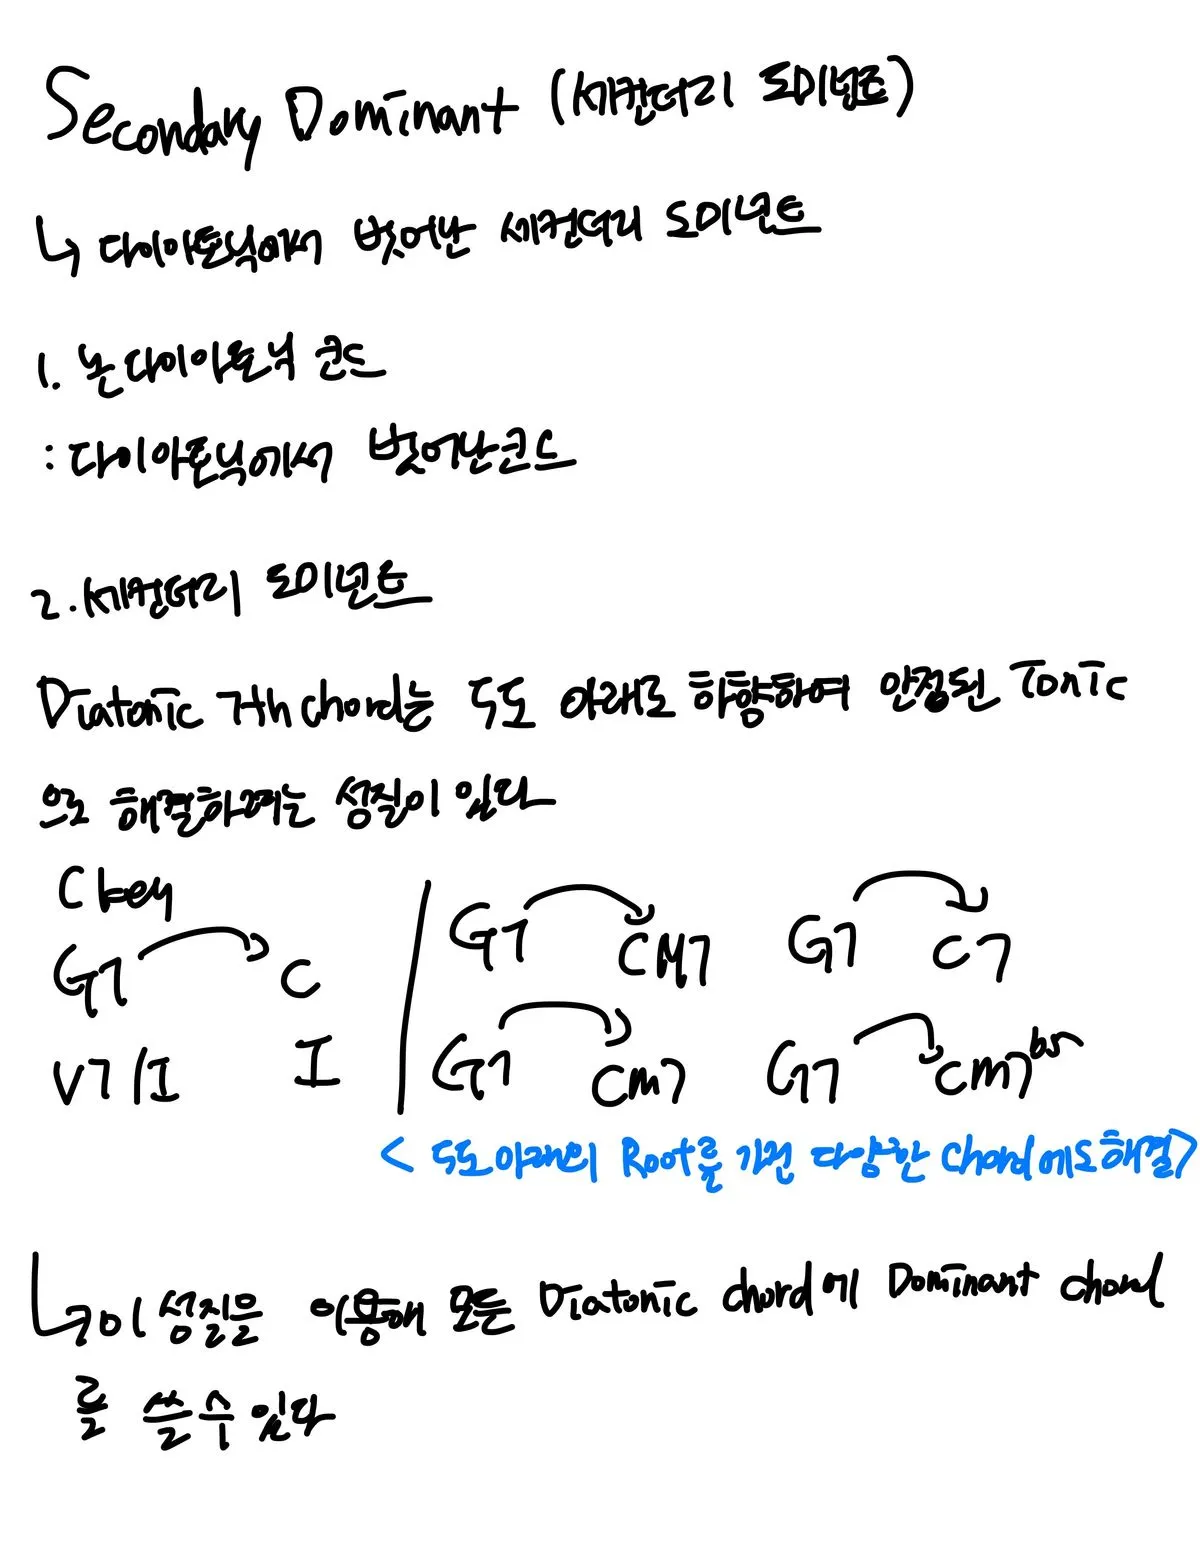 Secondary Dominant (세컨더리 도미넌트)
↳ 다이아토닉에서 벗어난 세컨더리 도미넌트
1. 논다이아토닉 코드
: 다이아토닉에서 벗어난코드
2. 세컨더리 도미넌트
Diatonic 7th chord는 5도 아래로 하향하여 안정된 Tonic
으로 해결하려는 성질이 있다
C key
G7 C
V7/I I
G7 CM7 G7 C7
G7 Cm7 G7 Cm7b5
< 5도아래의 Root를 가진 다양한 chord에도해결>
↳이 성질을 이용해 모든 Diatonic chord에 Dominant chord
를 쓸수있다